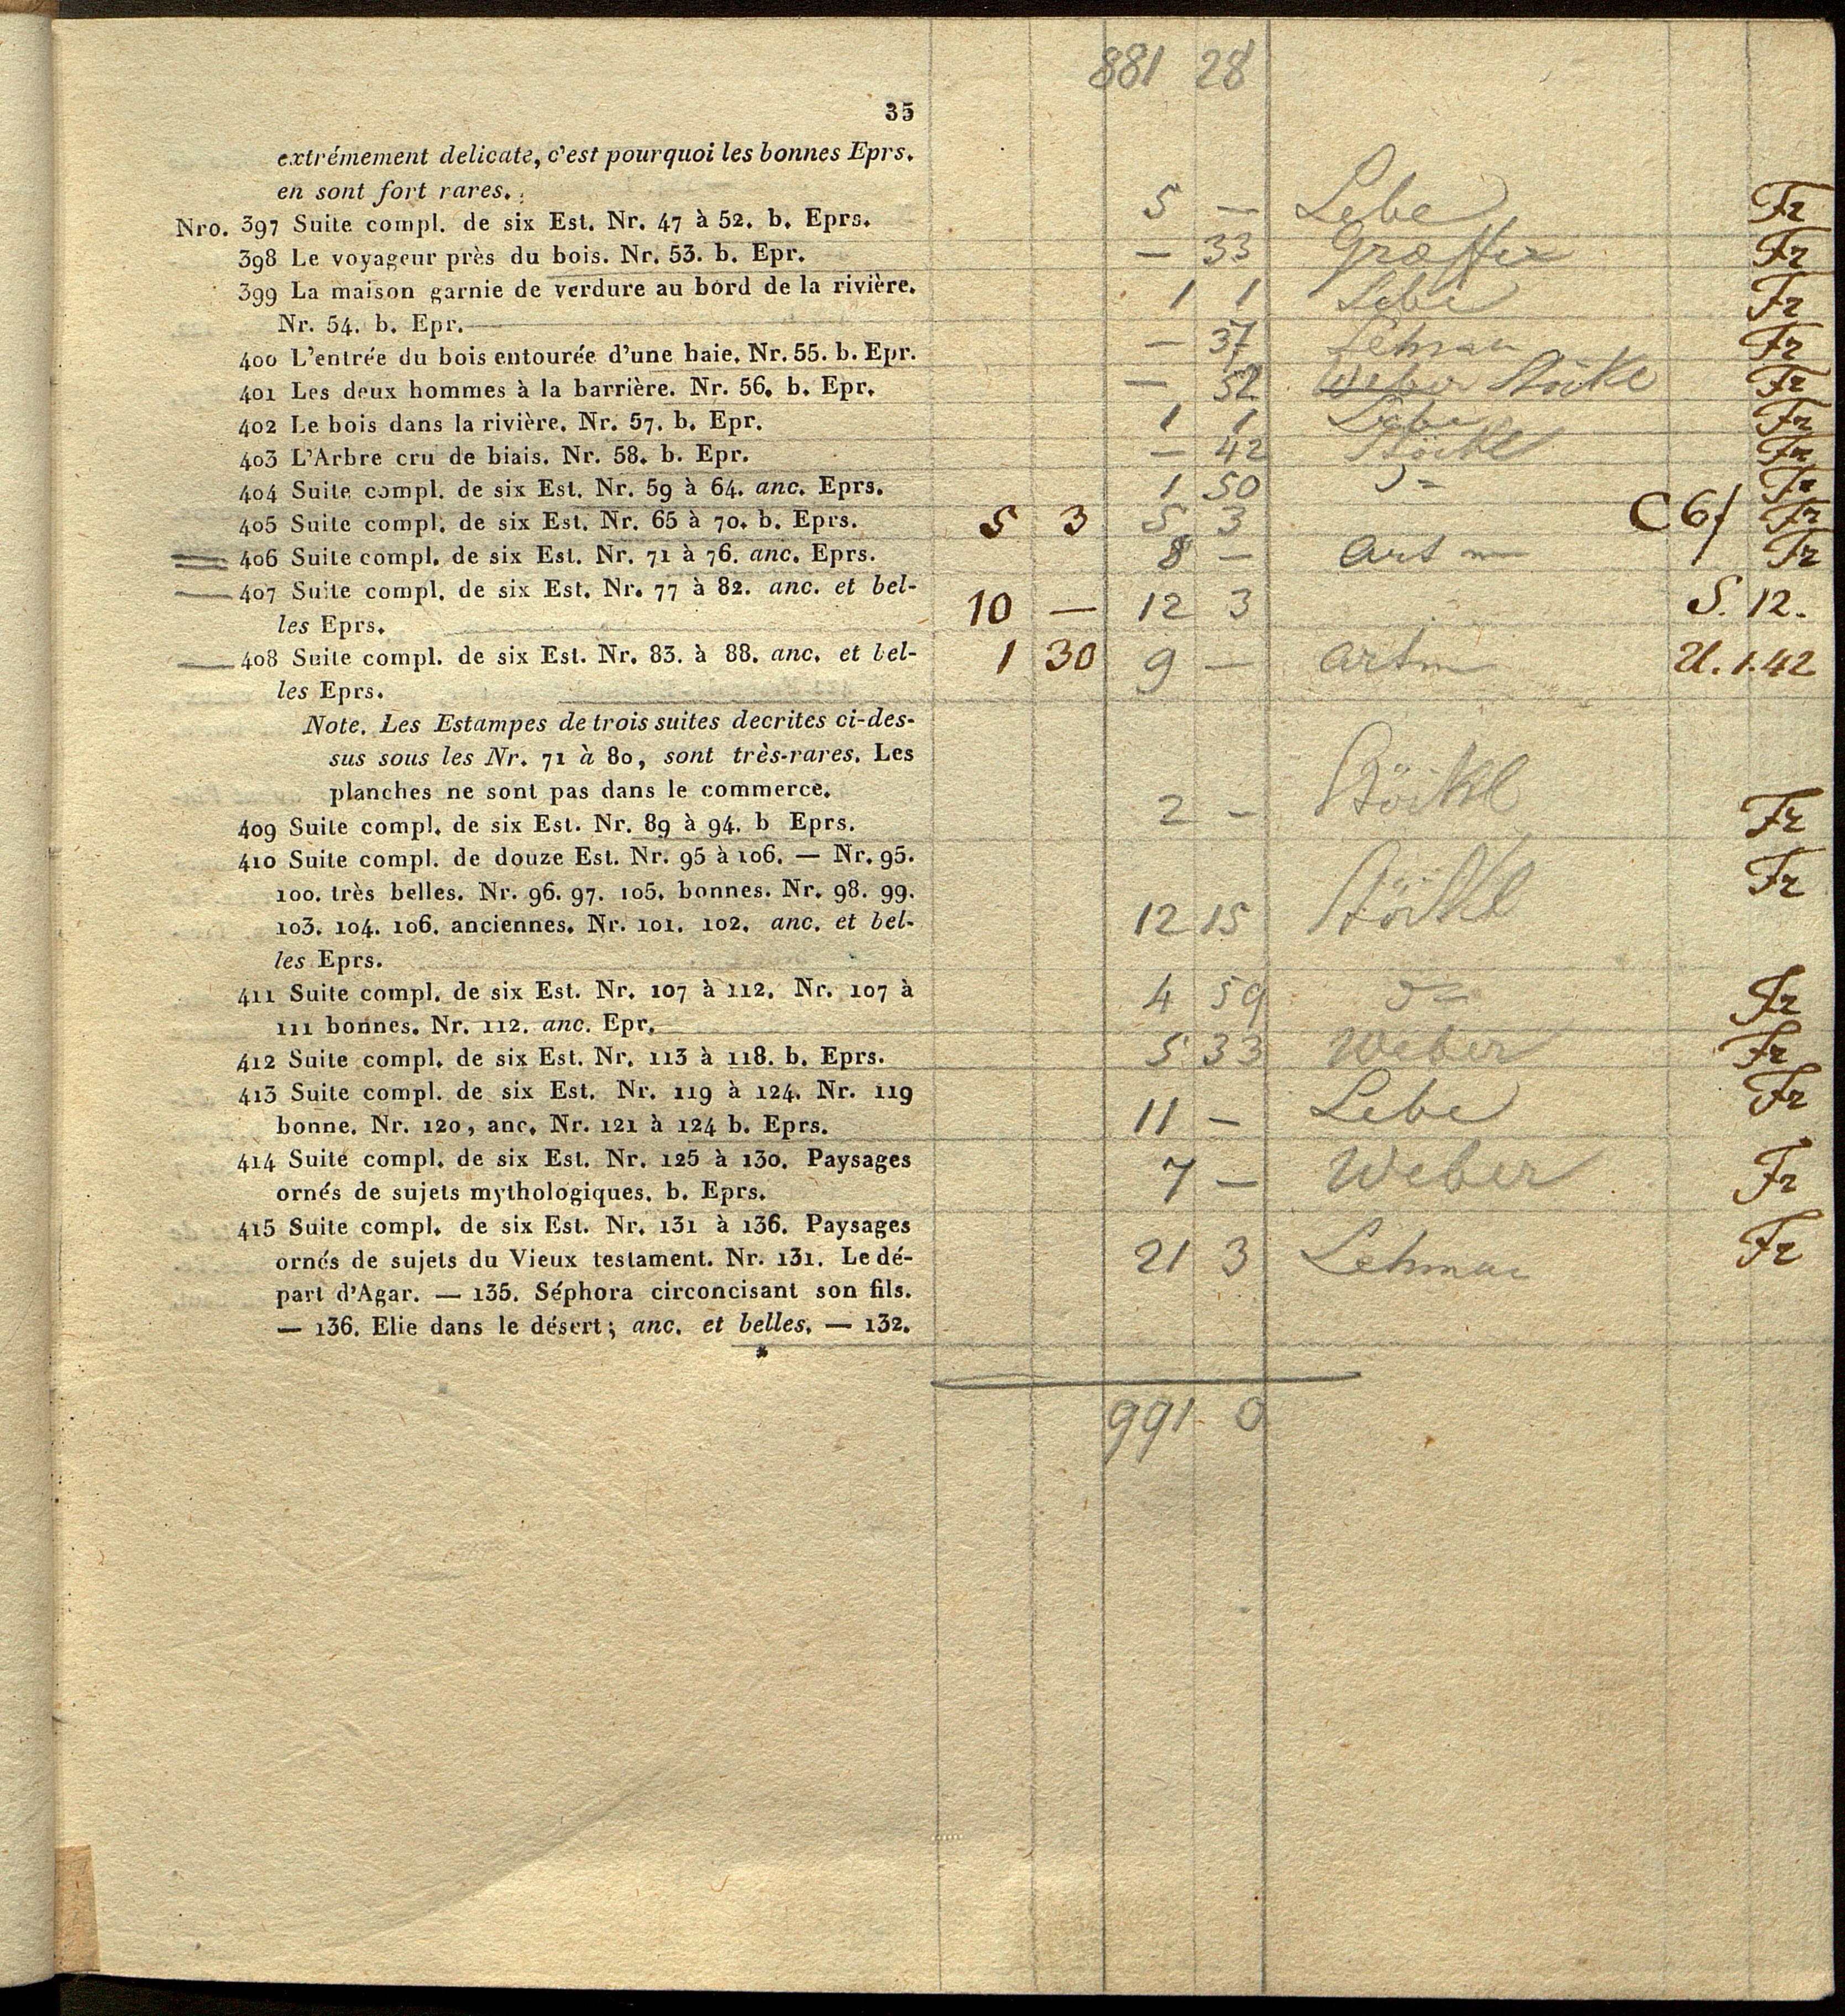 881 28
35
extrémement delicate, c'est pourquoi les bonnes Eprs.
en sont fort rares.
Nro. 397 Suite compl. de six Est. Nr. 47 à 52. b. Eprs. 5 — Lebe Fr
398 Le voyageur près du bois. Nr. 53. b. Epr. — 33 Fr
399 La maison garnie de verdure au bord de la rivière. 1 1 Lebe Fr
Nr. 54. b. Epr.
400 L'entrée du bois entourée d'une haie. Nr. 55. b. Epr. — 37 Lehman Fr
401 Les deux hommes à la barrière. Nr. 56. b. Epr. — 52 Weber Stökl Fr
402 Le bois dans la rivière. Nr. 57. b. Epr. 1 1 Lebe Fr
403 L'Arbre cru de biais. Nr. 58. b. Epr. — 42 Stöckl Fr
404 Suite compl. de six Est. Nr. 59 à 64. anc. Eprs. 1 50 Fr
405 Suite compl. de six Est. Nr. 65 à 70. b. Eprs. 5 3 5 3 C 6/ Fr
406 Suite compl. de six Est. Nr. 71 à 76. anc. Eprs. 8 — Artm Fr
407 Suite compl. de six Est. Nr. 77 à 82. anc. et bel- 10 — 12 3 S. 12.
les Eprs.
408 Suite compl. de six Est. Nr. 83. à 88. anc. et bel- 1 30 9 — Artm U. 1.42
les Eprs.
Note. Les Estampes de trois suites decrites ci-des-
sus sous les Nr. 71 à 80, sont très-rares. Les
planches ne sont pas dans le commerce.
409 Suite compl. de six Est. Nr. 89 à 94. b Eprs. 2 — Stöckl Fr
410 Suite compl. de douze Est. Nr. 95 à 106. — Nr. 95. Fr
100. très belles. Nr. 96. 97. 105. bonnes. Nr. 98. 99.
103. 104. 106. anciennes. Nr. 101. 102. anc. et bel- 12 15 Stöckl
les Eprs.
411 Suite compl. de six Est. Nr. 107 à 112. Nr. 107 à 4 59 Fr
111 bonnes. Nr. 112. anc. Epr.
412 Suite compl. de six Est. Nr. 113 à 118. b. Eprs. 5 33 Weber Fr
413 Suite compl. de six Est. Nr. 119 à 124. Nr. 119 Fr
bonne. Nr. 120, anc. Nr. 121 à 124 b. Eprs. 11 — Lebe
414 Suite compl. de six Est. Nr. 125 à 130. Paysages 7 — Weber Fr
ornés de sujets mythologiques. b. Eprs.
415 Suite compl. de six Est. Nr. 131 à 136. Paysages Fr
ornés de sujets du Vieux testament. Nr. 131. Le dé- 21 3 Lehman
part d'Agar. — 135. Séphora circoncisant son fils.
— 136. Elie dans le désert; anc. et belles. — 132.
*
991 0